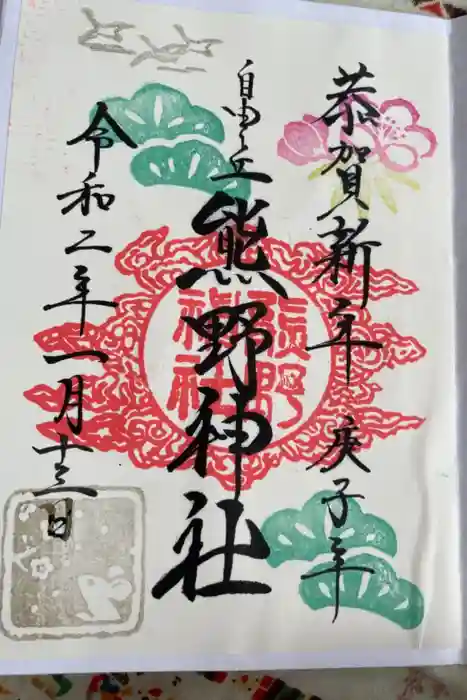 恭賀新年 庚子年
自由丘
熊野神社
令和二年一月十三日